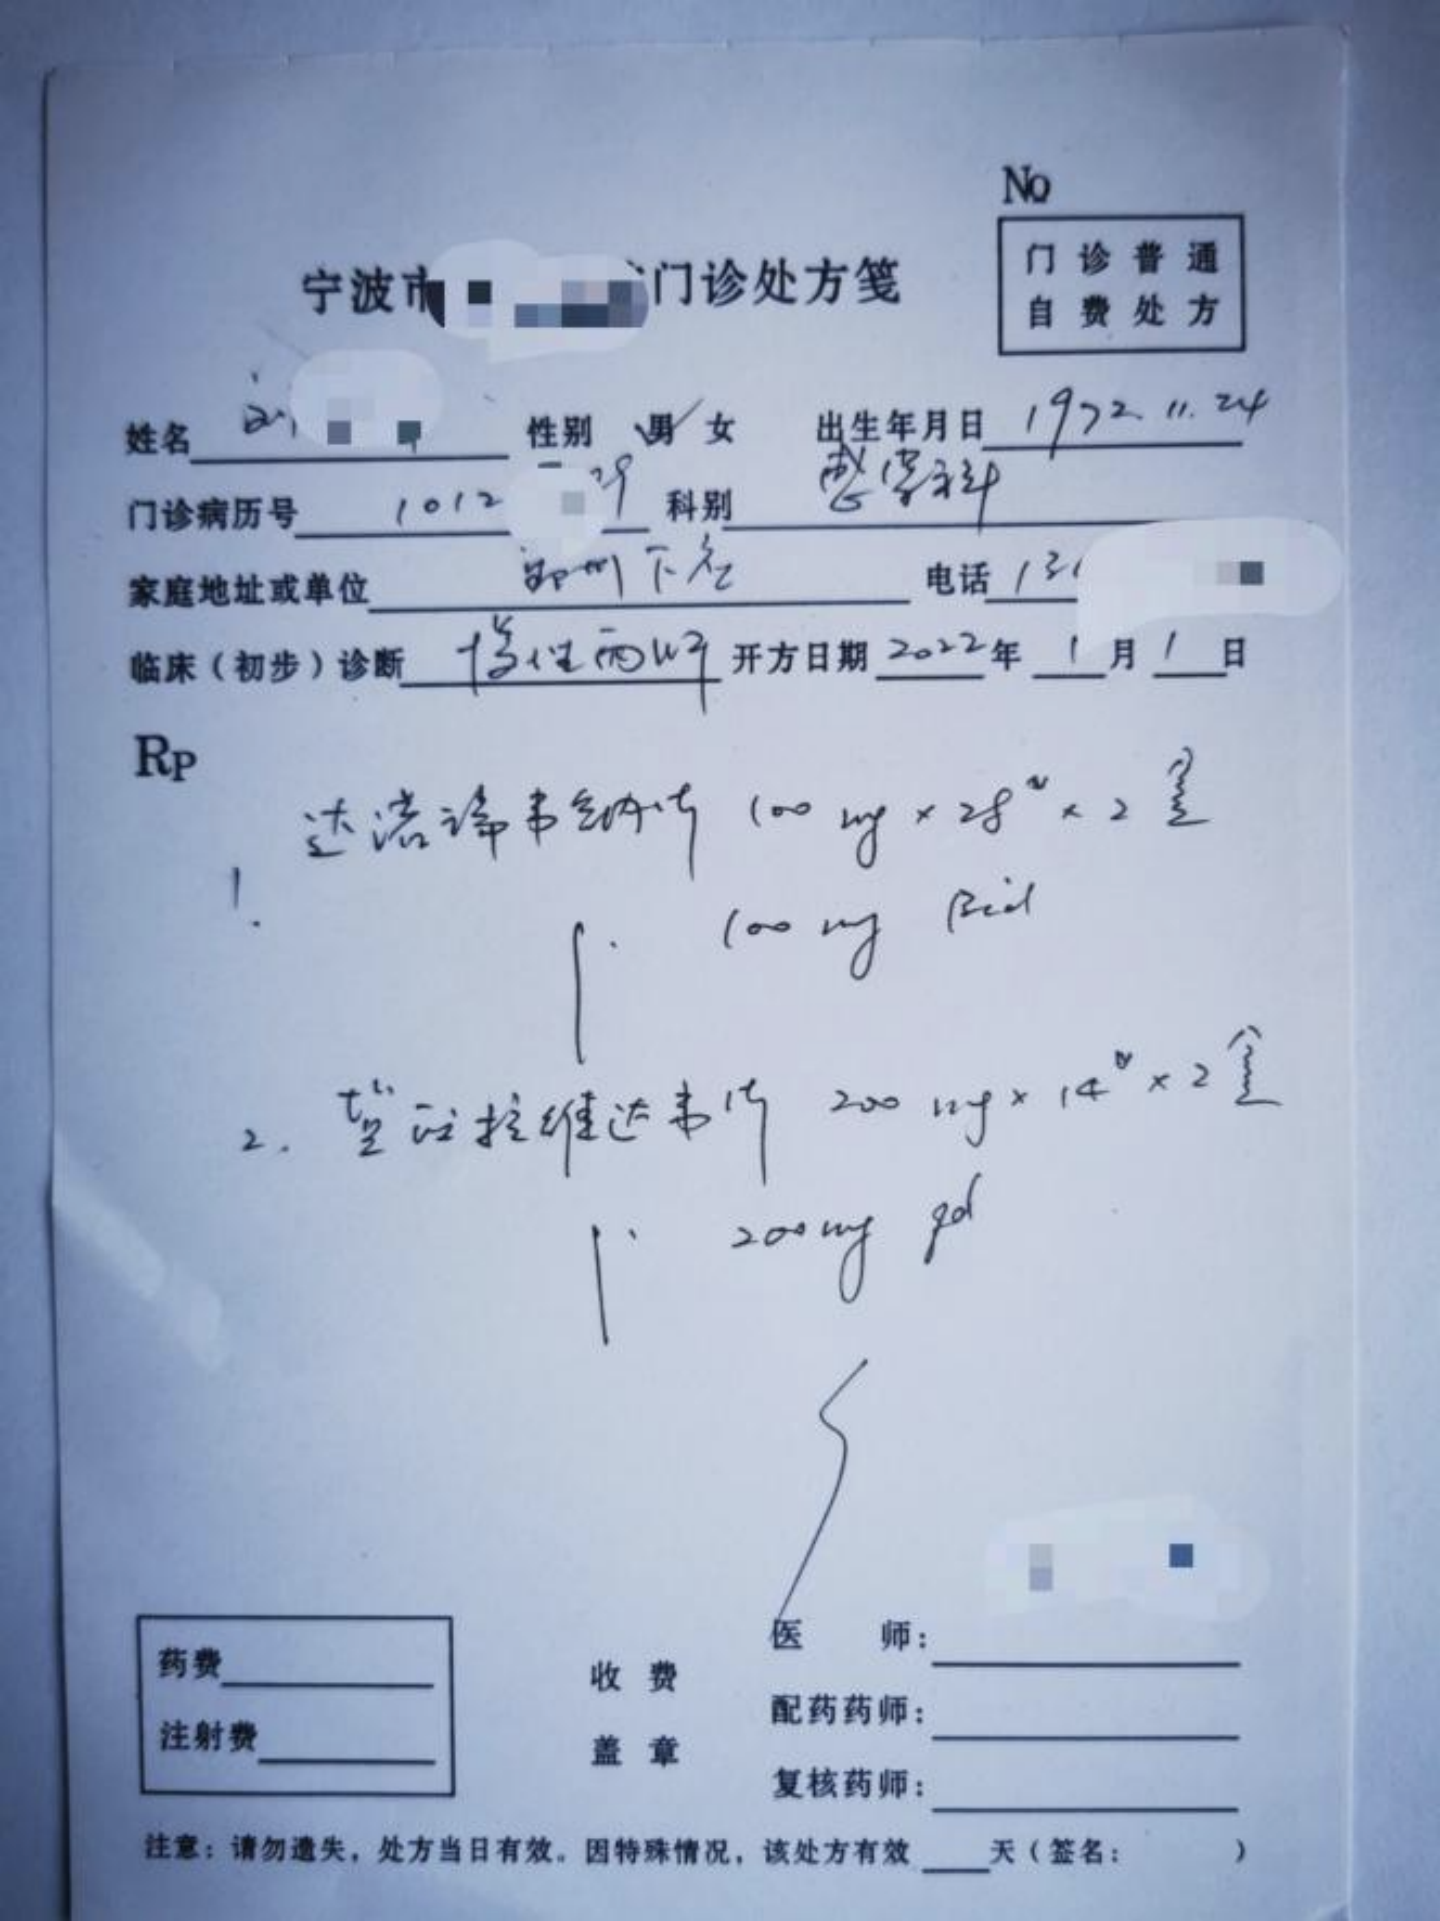 No
门诊普通
自费处方
宁波市 门诊处方笺
姓名 刘 性别 男 女 出生年月日 1972.11.24
门诊病历号 1012 29 科别 感染科
家庭地址或单位 鄞州下应 电话 13
临床(初步)诊断 慢性丙肝 开方日期 2022年 1月1日
Rp
1. 达诺瑞韦钠片 100mg×28#×2盒
100mg Bid
2. 盐酸拉维达韦片 200mg×14#×2盒
200mg qd
医 师:
药费
收费
配药药师:
注射费
盖章
复核药师:
注意:请勿遗失,处方当日有效。因特殊情况,该处方有效 天(签名: )